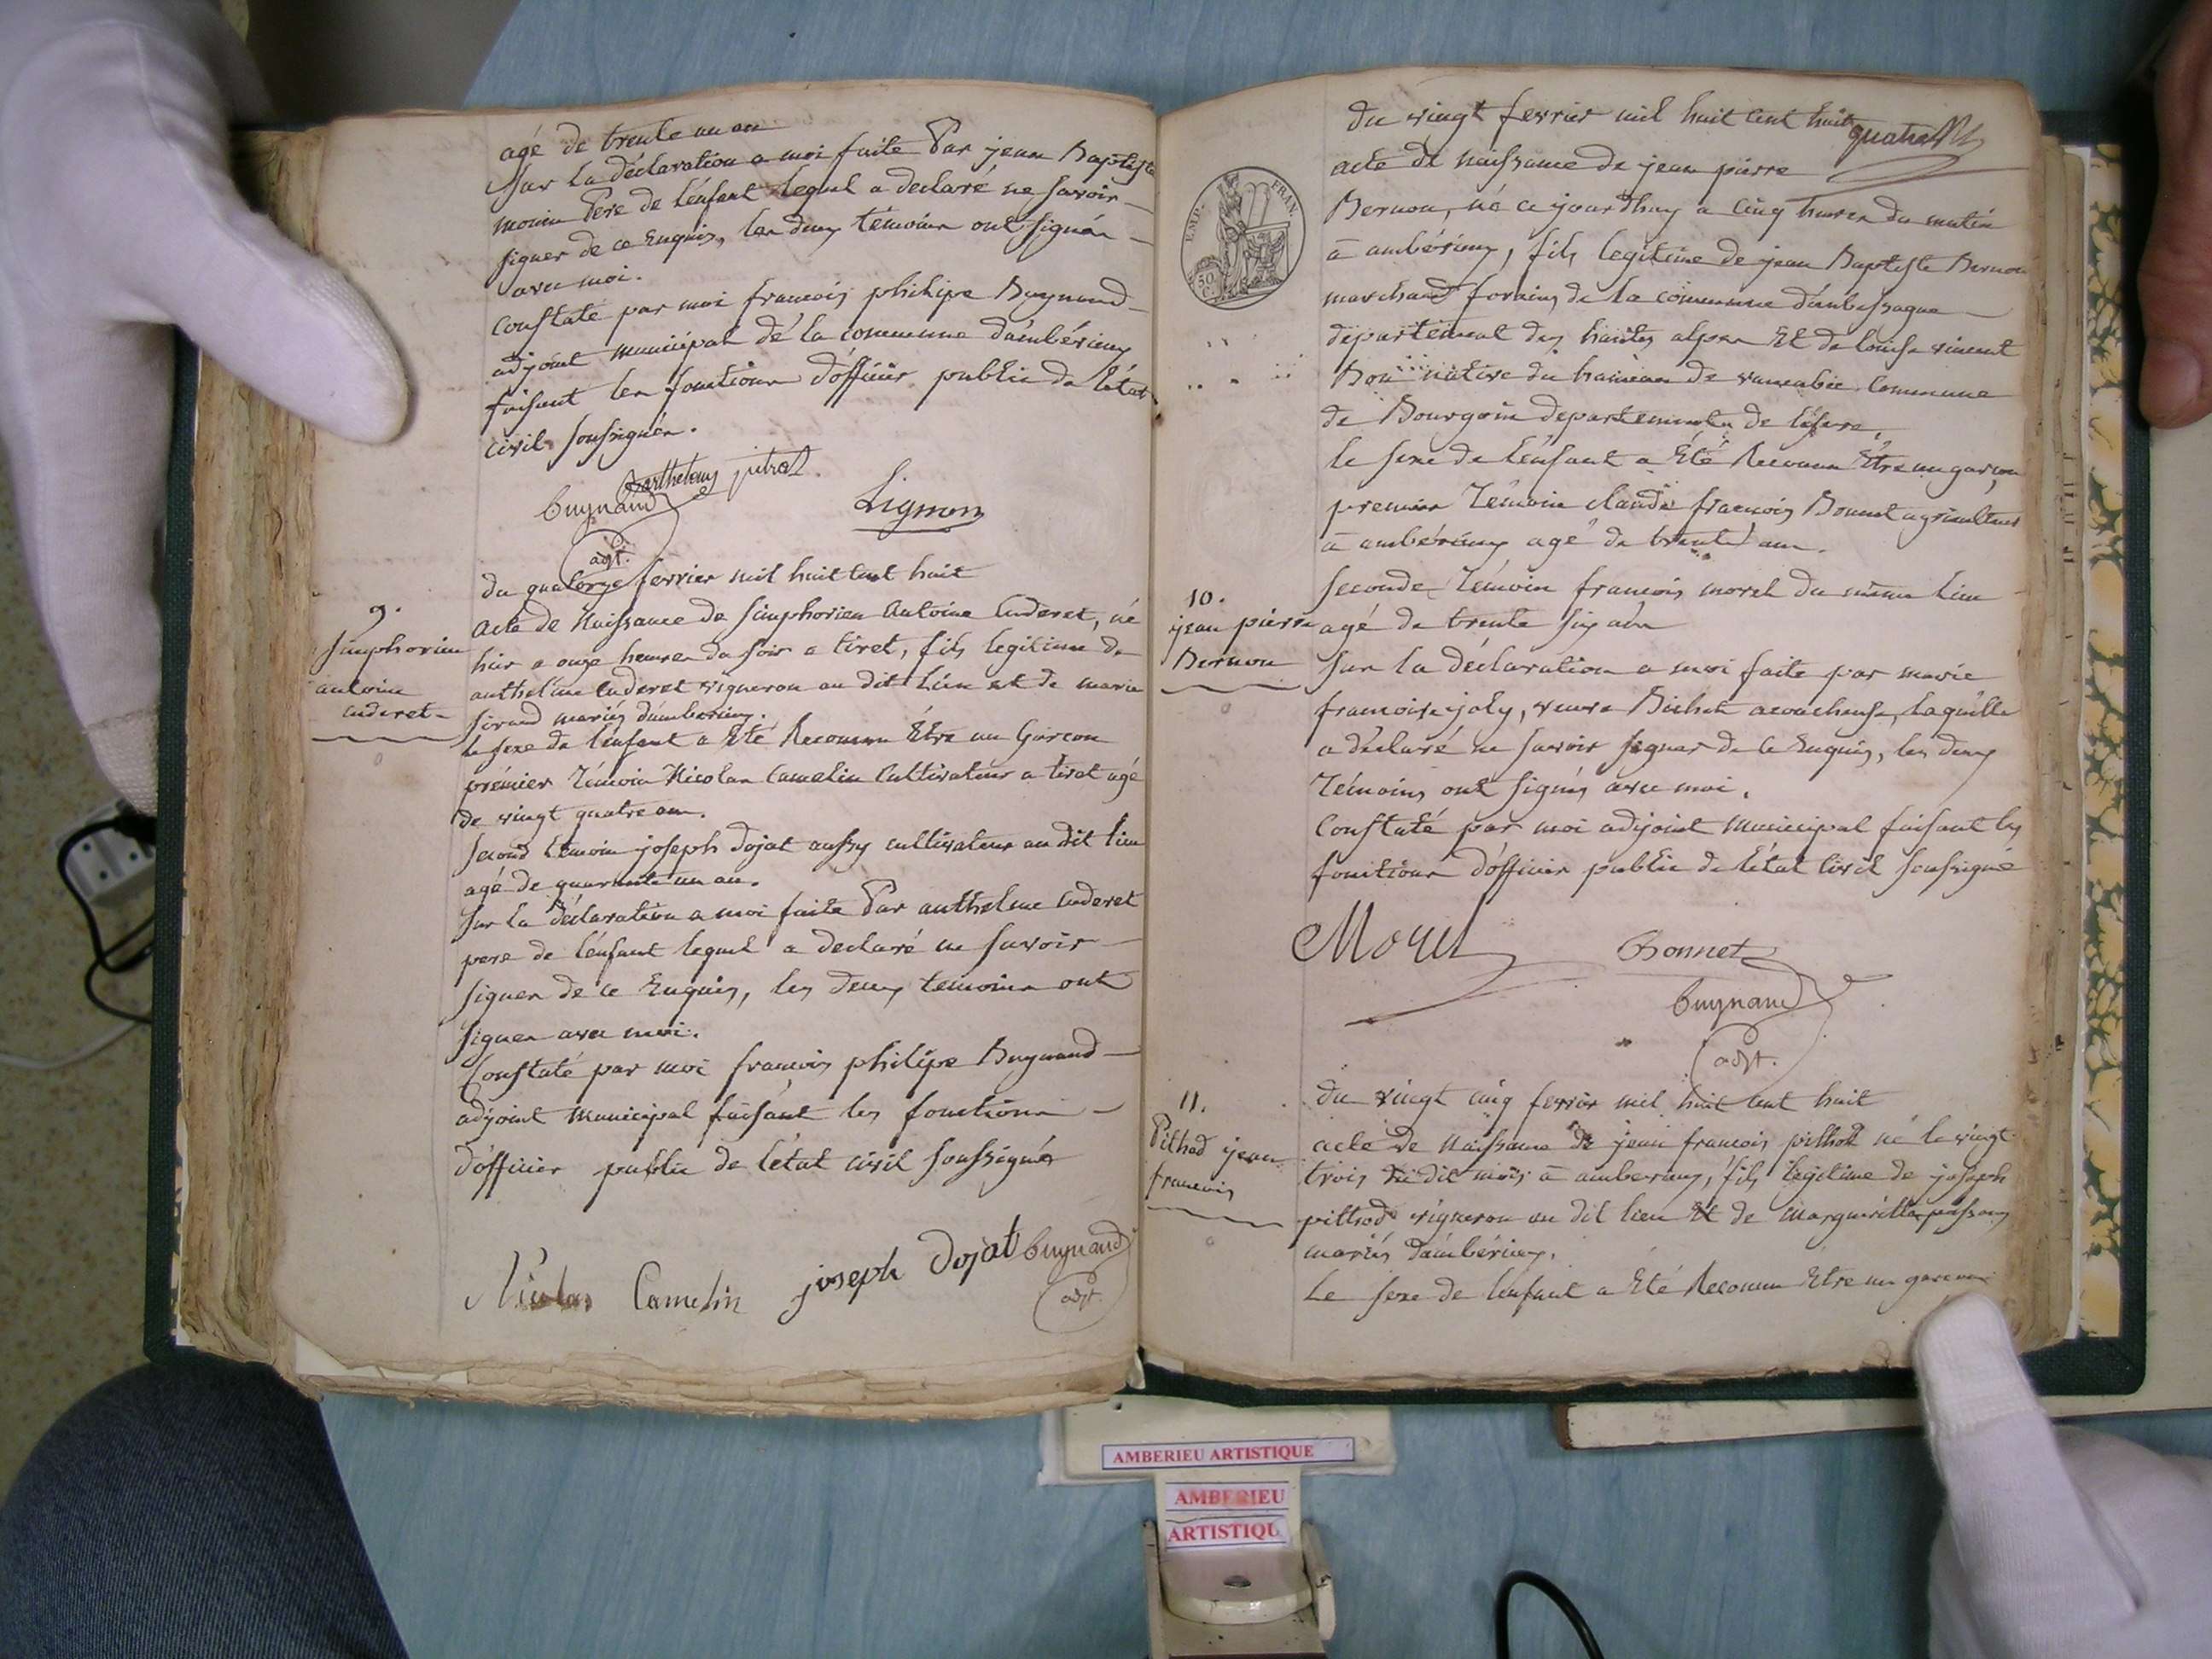 agé de trente un an
Sur la déclaration a moi faite Par jean Baptiste
monin Pere de l'enfant lequel a declaré ne savoir
signer de ce Enquis, les deux témoins ont signés
avec moi.
Constaté par moi francois philipe Bugnand
adjoint municipal de la commune d'ambérieux
faisant les fonctions d'officier public de l'état
civil soussignés.
Barthelemy pitrat.
Bugnand
Lignon
adjt.
du quatorze fevrier mil huit cent huit
9.
Simphorien
antoine
cuderet
acte de Naissance de Simphorien Antoine Cuderet, né
hier a onze heures du soir a tiret, fils legitime de
anthelme Cuderet vigneron au dit Lieu et de marie
sirand mariés d'amberieux.
le sexe de l'enfant a Eté Reconnu Être un Garcon
prémier Témoin Nicolas Camelin Cultivateur a tiret agé
de vingt quatre ans.
second témoin joseph Dojat aussy cultivateur au dit lieu
agé de quarante un an.
Sur la déclaration a moi faite Par anthelme Cuderet
pere de l'enfant lequel a declaré ne savoir
signer de ce Enquis, les deux temoins ont
signer avec moi.
Constaté par moi francois philipe Bugnand
adjoint municipal faisant les fonctions
d'officier public de l'état civil soussignés
Nicolas Camelin joseph Dojat Bugnand
adjt.
du vingt fevrier mil huit cent huit
quatre
EMP. FRAN.
50 C.
acte de naissance de jean pierre
Bernou, né ce jourdhuy a cinq heures du matin
à ambérieux, fils legitime de jean Baptiste Bernou
marchand forains de la commune d'ambessagne
département des hautes alpes Et de louise vincent
native du hameau de commune
de Bourgoin departements de l'isere.
le sexe de l'enfant a Eté Reconnu Etre un garçon
premier Témoin claude francois Bonnet agriculteur
à ambérieux agé de trente ans.
10.
jean pierre
Bernou
seconde Témoin francois morel du même lieu
agé de trente six ans
sur la déclaration a moi faite par marie
francoise joly, veuve Bichat acoucheuse, laquelle
a déclaré ne savoir signer de ce Enquis, les deux
Témoins ont signés avec moi.
Constaté par moi adjoint municipal faisant les
fonctions d'officier public de l'état civil soussigné
Morel Bonnet
Bugnand
adjt.
du vingt cinq fevrier mil huit cent huit
11.
Pithod jean
francois
acte de naissance de jean francois pithod né le vingt
trois du dit mois à amberieux, fils legitime de joseph
pithod vigneron au dit lieu Et de margueritte
mariés d'ambérieux.
Le sexe de l'enfant a Eté Reconnu Etre un garcon
AMBERIEU ARTISTIQUE
AMBERIEU
ARTISTIQU